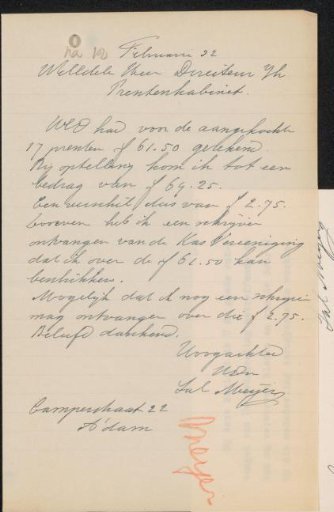 na 10
Februari 22
WelEdele Heer Directeur Yh
Prentenkabinet.
WEd had voor de aangekochte
17 prenten f 61.50 getekend
Bij optelling kom ik tot een
bedrag van f 64.25.
Een verschil dus van f 2.75.
bovendien heb ik een schrijven
ontvangen van de Kas Vereeniging
dat ik over de f 61.50 kan
beschikken.
Mogelijk dat ik nog een schrijven
mag ontvangen over die f 2.75.
Beleefd dankend.
Hoogachtend
UEdr
Sal Meijer
Camperstraat 22
A'dam
Meyer